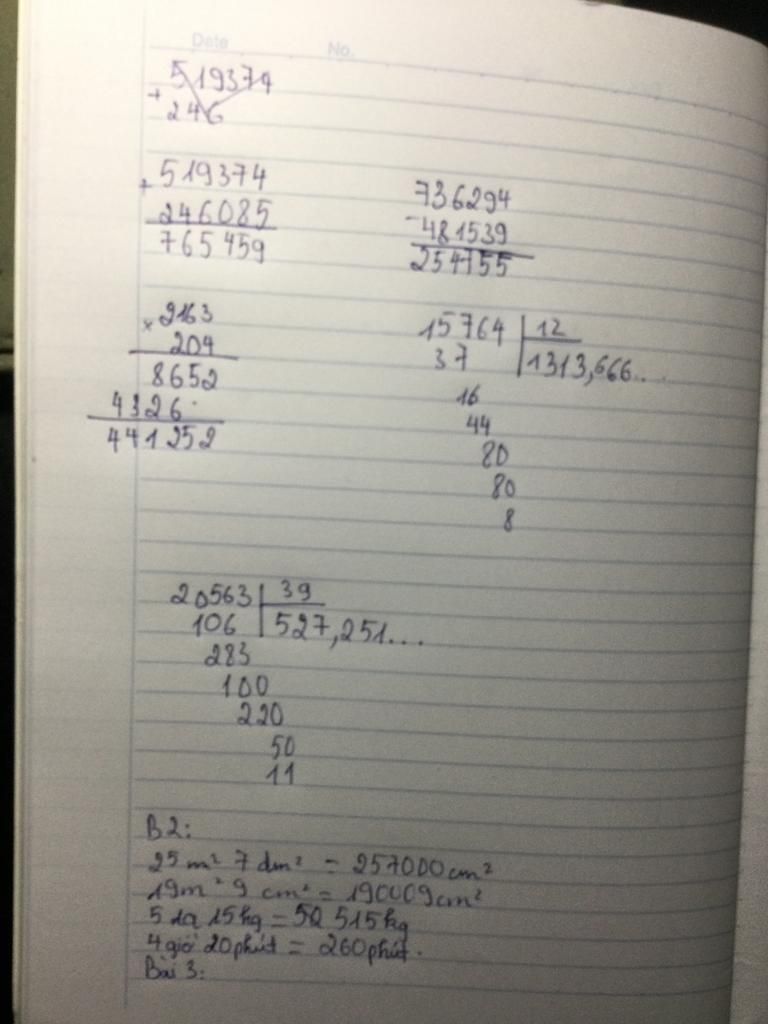 Date No.
519374
+
246
519374
+
246085
765459
736294
-
481539
254755
2163
×
204
8652
4326.
441252
15764 12
37 1313,666...
16
44
80
80
8
20563 39
106 527,251...
283
100
220
50
11
B2:
25m² 7 dm² = 257000cm²
19m² 9 cm² = 190009cm²
15kg = 515kg
4 giờ 20phút = 260phút.
Bài 3: